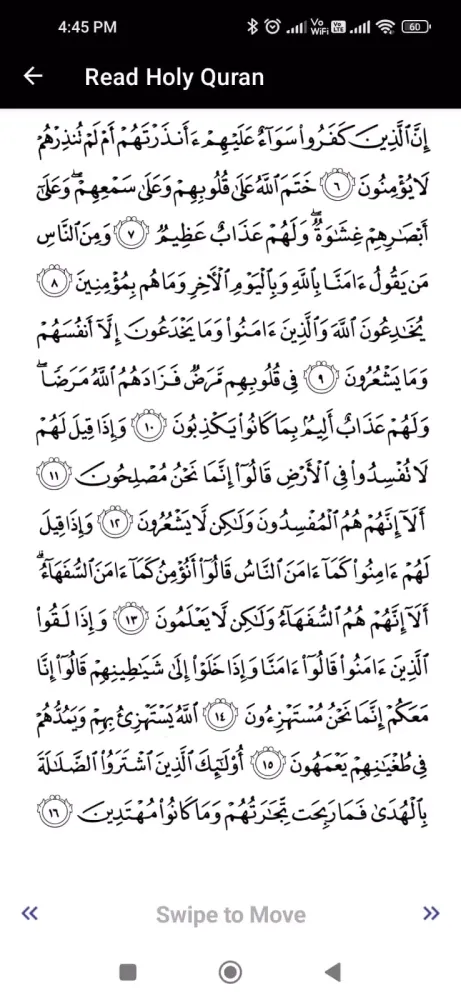 4:45 PM
Vo WiFi Vo LTE 60
Read Holy Quran
إِنَّ ٱلَّذِينَ كَفَرُوا۟ سَوَآءٌ عَلَيْهِمْ ءَأَنذَرْتَهُمْ أَمْ لَمْ تُنذِرْهُمْ
لَا يُؤْمِنُونَ ٦ خَتَمَ ٱللَّهُ عَلَىٰ قُلُوبِهِمْ وَعَلَىٰ سَمْعِهِمْ ۖ وَعَلَىٰٓ
أَبْصَٰرِهِمْ غِشَٰوَةٌ ۖ وَلَهُمْ عَذَابٌ عَظِيمٌ ٧ وَمِنَ ٱلنَّاسِ
مَن يَقُولُ ءَامَنَّا بِٱللَّهِ وَبِٱلْيَوْمِ ٱلْءَاخِرِ وَمَا هُم بِمُؤْمِنِينَ ٨
يُخَٰدِعُونَ ٱللَّهَ وَٱلَّذِينَ ءَامَنُوا۟ وَمَا يَخْدَعُونَ إِلَّآ أَنفُسَهُمْ
وَمَا يَشْعُرُونَ ٩ فِى قُلُوبِهِم مَّرَضٌ فَزَادَهُمُ ٱللَّهُ مَرَضًا ۖ
وَلَهُمْ عَذَابٌ أَلِيمٌۢ بِمَا كَانُوا۟ يَكْذِبُونَ ١٠ وَإِذَا قِيلَ لَهُمْ
لَا تُفْسِدُوا۟ فِى ٱلْأَرْضِ قَالُوٓا۟ إِنَّمَا نَحْنُ مُصْلِحُونَ ١١
أَلَآ إِنَّهُمْ هُمُ ٱلْمُفْسِدُونَ وَلَٰكِن لَّا يَشْعُرُونَ ١٢ وَإِذَا قِيلَ
لَهُمْ ءَامِنُوا۟ كَمَآ ءَامَنَ ٱلنَّاسُ قَالُوٓا۟ أَنُؤْمِنُ كَمَآ ءَامَنَ ٱلسُّفَهَآءُ ۗ
أَلَآ إِنَّهُمْ هُمُ ٱلسُّفَهَآءُ وَلَٰكِن لَّا يَعْلَمُونَ ١٣ وَإِذَا لَقُوا۟
ٱلَّذِينَ ءَامَنُوا۟ قَالُوٓا۟ ءَامَنَّا وَإِذَا خَلَوْا۟ إِلَىٰ شَيَٰطِينِهِمْ قَالُوٓا۟ إِنَّا
مَعَكُمْ إِنَّمَا نَحْنُ مُسْتَهْزِءُونَ ١٤ ٱللَّهُ يَسْتَهْزِئُ بِهِمْ وَيَمُدُّهُمْ
فِى طُغْيَٰنِهِمْ يَعْمَهُونَ ١٥ أُو۟لَٰٓئِكَ ٱلَّذِينَ ٱشْتَرَوُا۟ ٱلضَّلَٰلَةَ
بِٱلْهُدَىٰ فَمَا رَبِحَت تِّجَٰرَتُهُمْ وَمَا كَانُوا۟ مُهْتَدِينَ ١٦
Swipe to Move